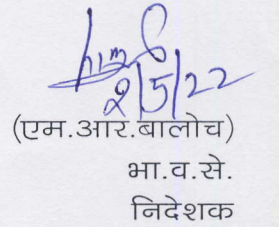 2/5/22
(एम.आर.बालोच)
भा.व.से.
निदेशक